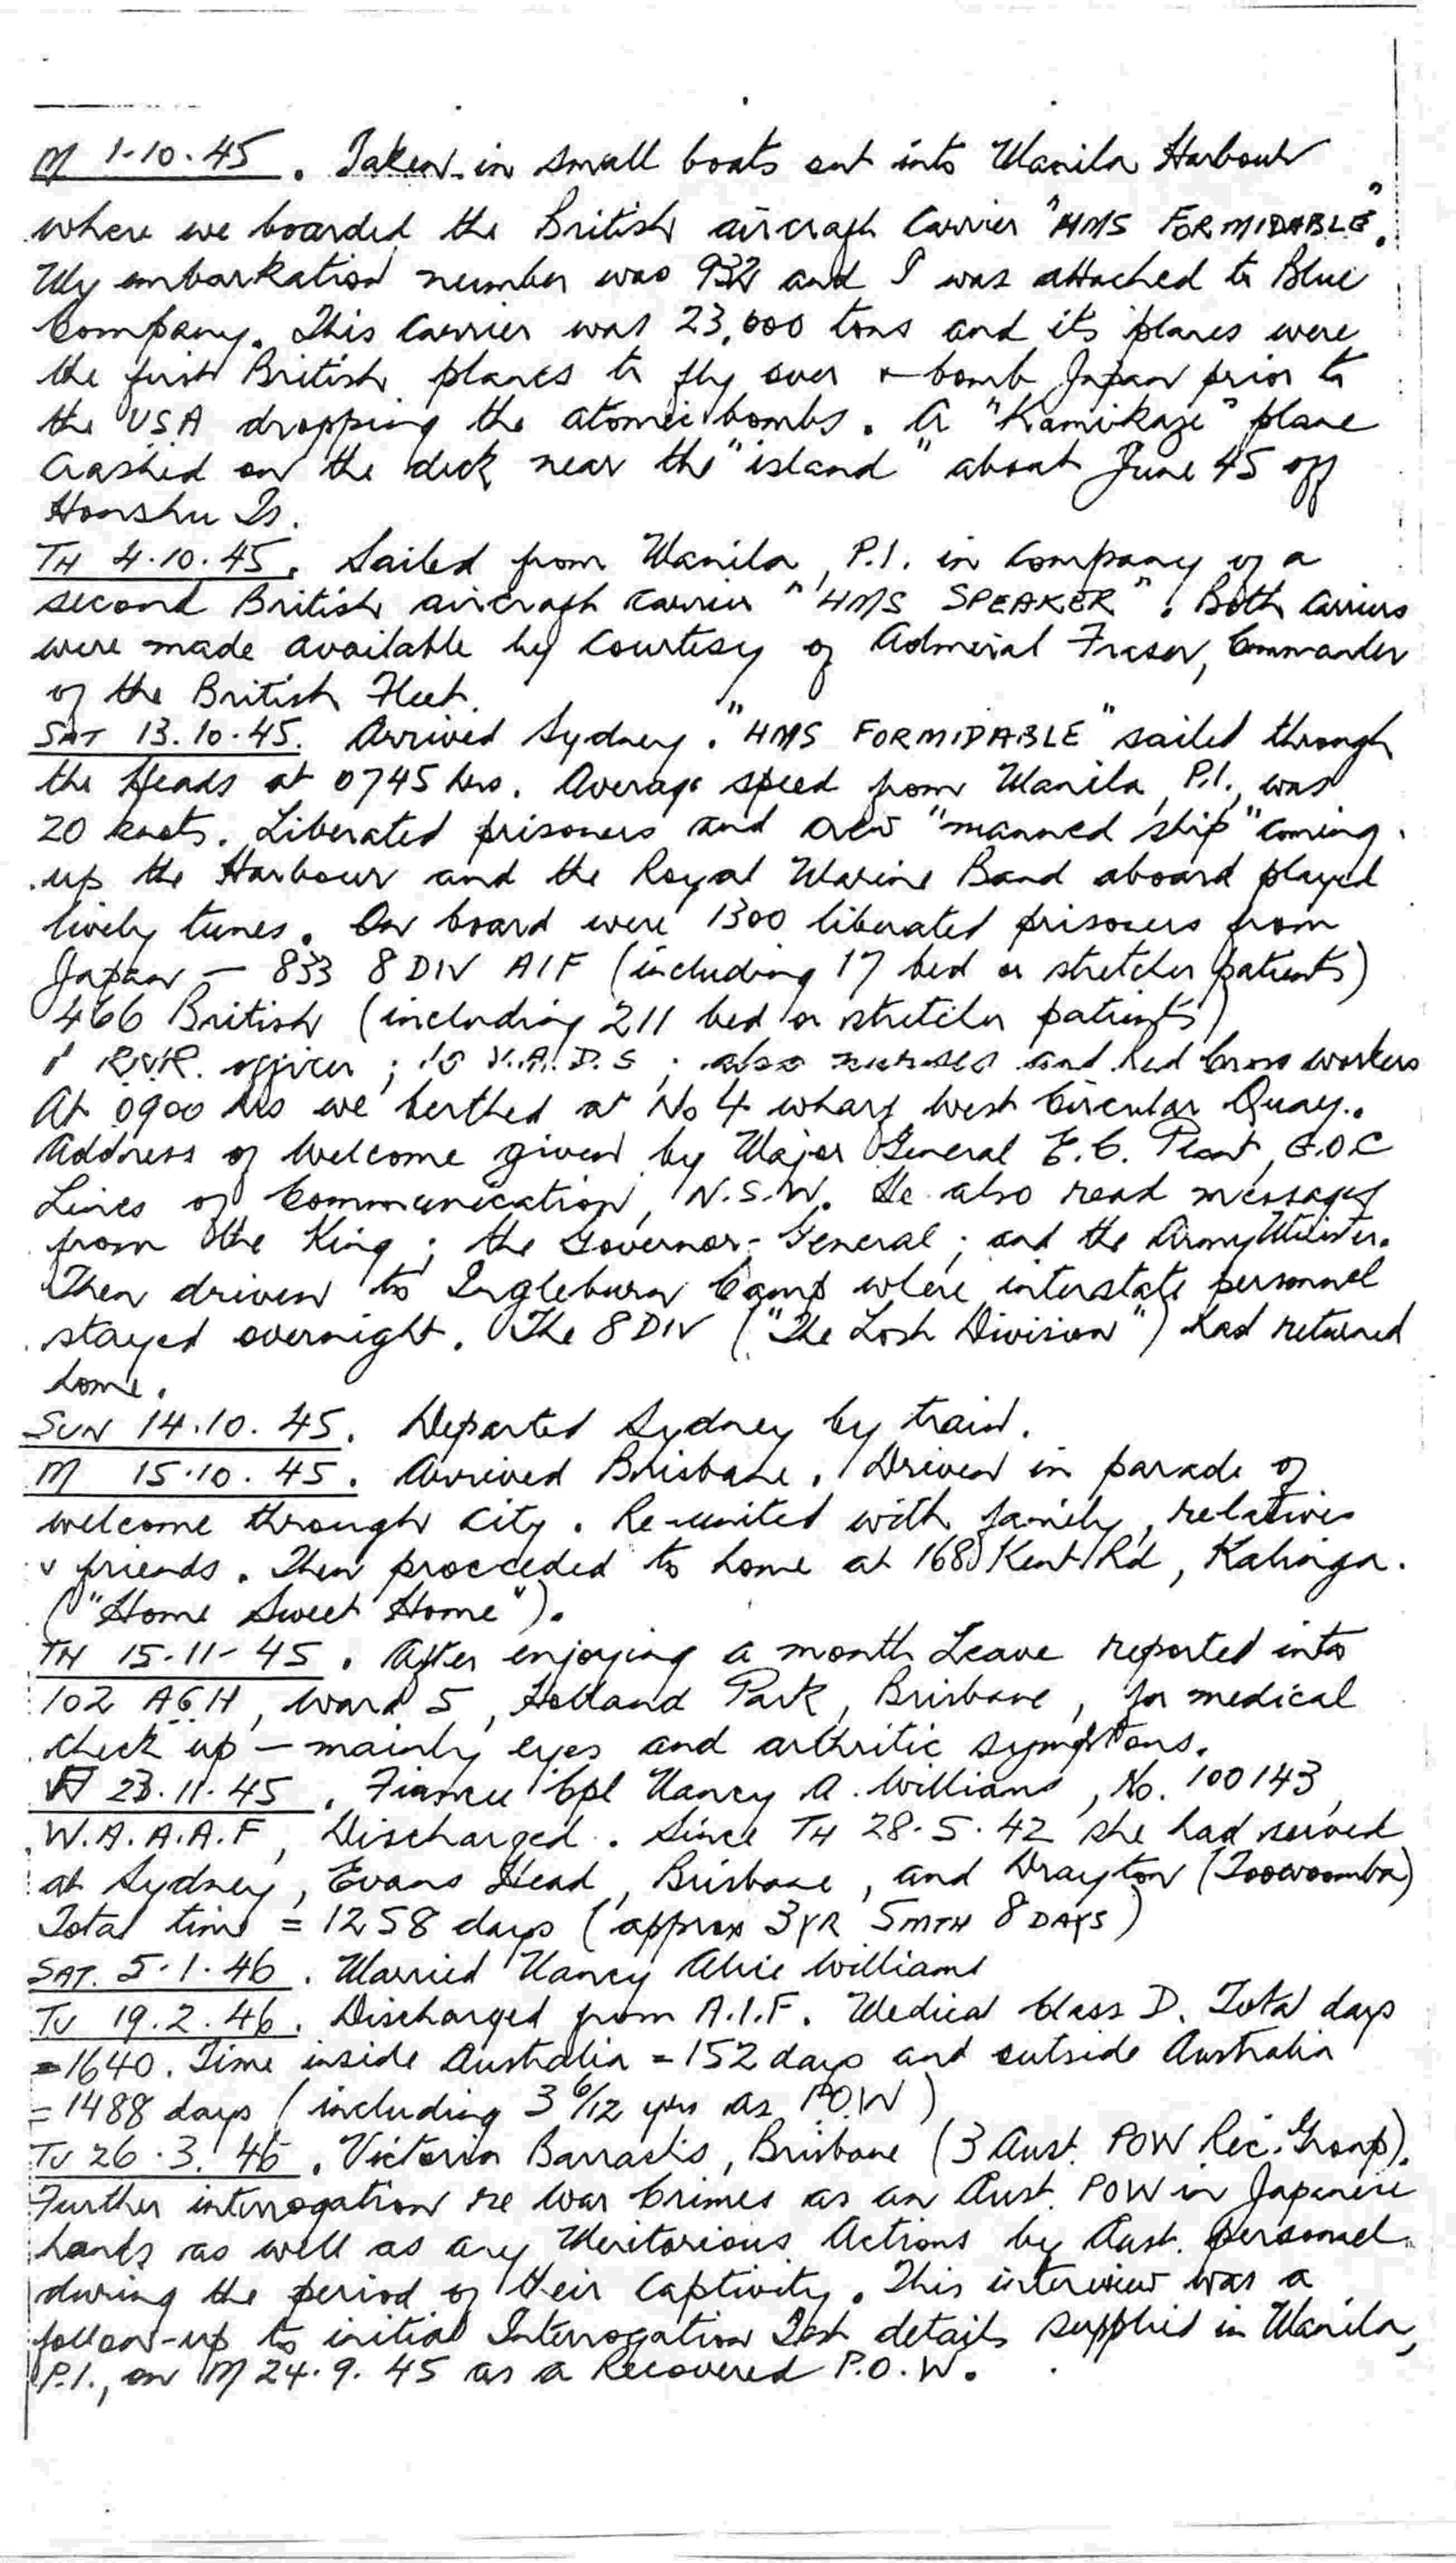 M 1.10.45. Taken in small boats out into Manila Harbour
where we boarded the British aircraft carrier "HMS FORMIDABLE".
My embarkation number was 932 and I was attached to Blue
Company. This carrier was 23,000 tons and its planes were
the first British planes to fly over & bomb Japan prior to
the USA dropping the atomic bombs. A "Kamikaze" plane
crashed on the deck near the "island" about June 45 off
Honshu Is.
TH 4.10.45. Sailed from Manila, P.I. in company of a
second British aircraft carrier "HMS SPEAKER". Both carriers
were made available by courtesy of Admiral Fraser, Commander
of the British Fleet.
SAT 13.10.45. Arrived Sydney. "HMS FORMIDABLE" sailed through
the Heads at 0745 hrs. Average speed from Manila, P.I., was
20 knots. Liberated prisoners and crew "manned ship" coming
up the Harbour and the Royal Marine Band aboard played
lively tunes. On board were 1300 liberated prisoners from
Japan - 833 8 DIV AIF (including 17 bed or stretcher patients)
466 British (including 211 bed or stretcher patients)
1 officer; 10 V.A.D.S; also nurses and Red Cross workers
At 0900 hrs we berthed at No 4 wharf West Circular Quay.
Address of Welcome given by Major General E.C. Plant, G.O.C
Lines of Communication, N.S.W. He also read messages
from the King; the Governor-General; and the Army Minister.
Then driven to Ingleburn Camp where interstate personnel
stayed overnight. The 8 DIV ("The Lost Division") had returned
home.
SUN 14.10.45. Departed Sydney by train.
M 15.10.45. Arrived Brisbane. Driven in parade of
welcome through city. Re-united with family, relatives
& friends. Then proceeded to home at 168 Kent Rd, Kalinga.
("Home Sweet Home").
TH 15-11-45. After enjoying a month Leave reported into
102 AGH, Ward 5, Holland Park, Brisbane, for medical
check up - mainly eyes and arthritic symptoms.
23.11.45. Fiancee Cpl Nancy A. Williams, No. 100143,
W.A.A.A.F, Discharged. Since TH 28.5.42 she had served
at Sydney, Evans Head, Brisbane, and Drayton (Toowoomba)
Total time = 1258 days (approx 3YR 5MTH 8 DAYS)
SAT. 5.1.46. Married Nancy Alice Williams
TU 19.2.46. Discharged from A.I.F. Medical Class D. Total days
=1640. Time inside Australia = 152 days and outside Australia
= 1488 days (including 3 6/12 yrs as POW)
TU 26.3.46. Victoria Barracks, Brisbane (3 Aust. POW Rec. Group).
Further interrogation re War Crimes as an Aust. POW in Japanese
hands as well as any Meritorious Actions by Aust. personnel
during the period of their captivity. This interview was a
follow-up to initial Interrogation details supplied in Manila,
P.I., on M 24.9.45 as a Recovered P.O.W.